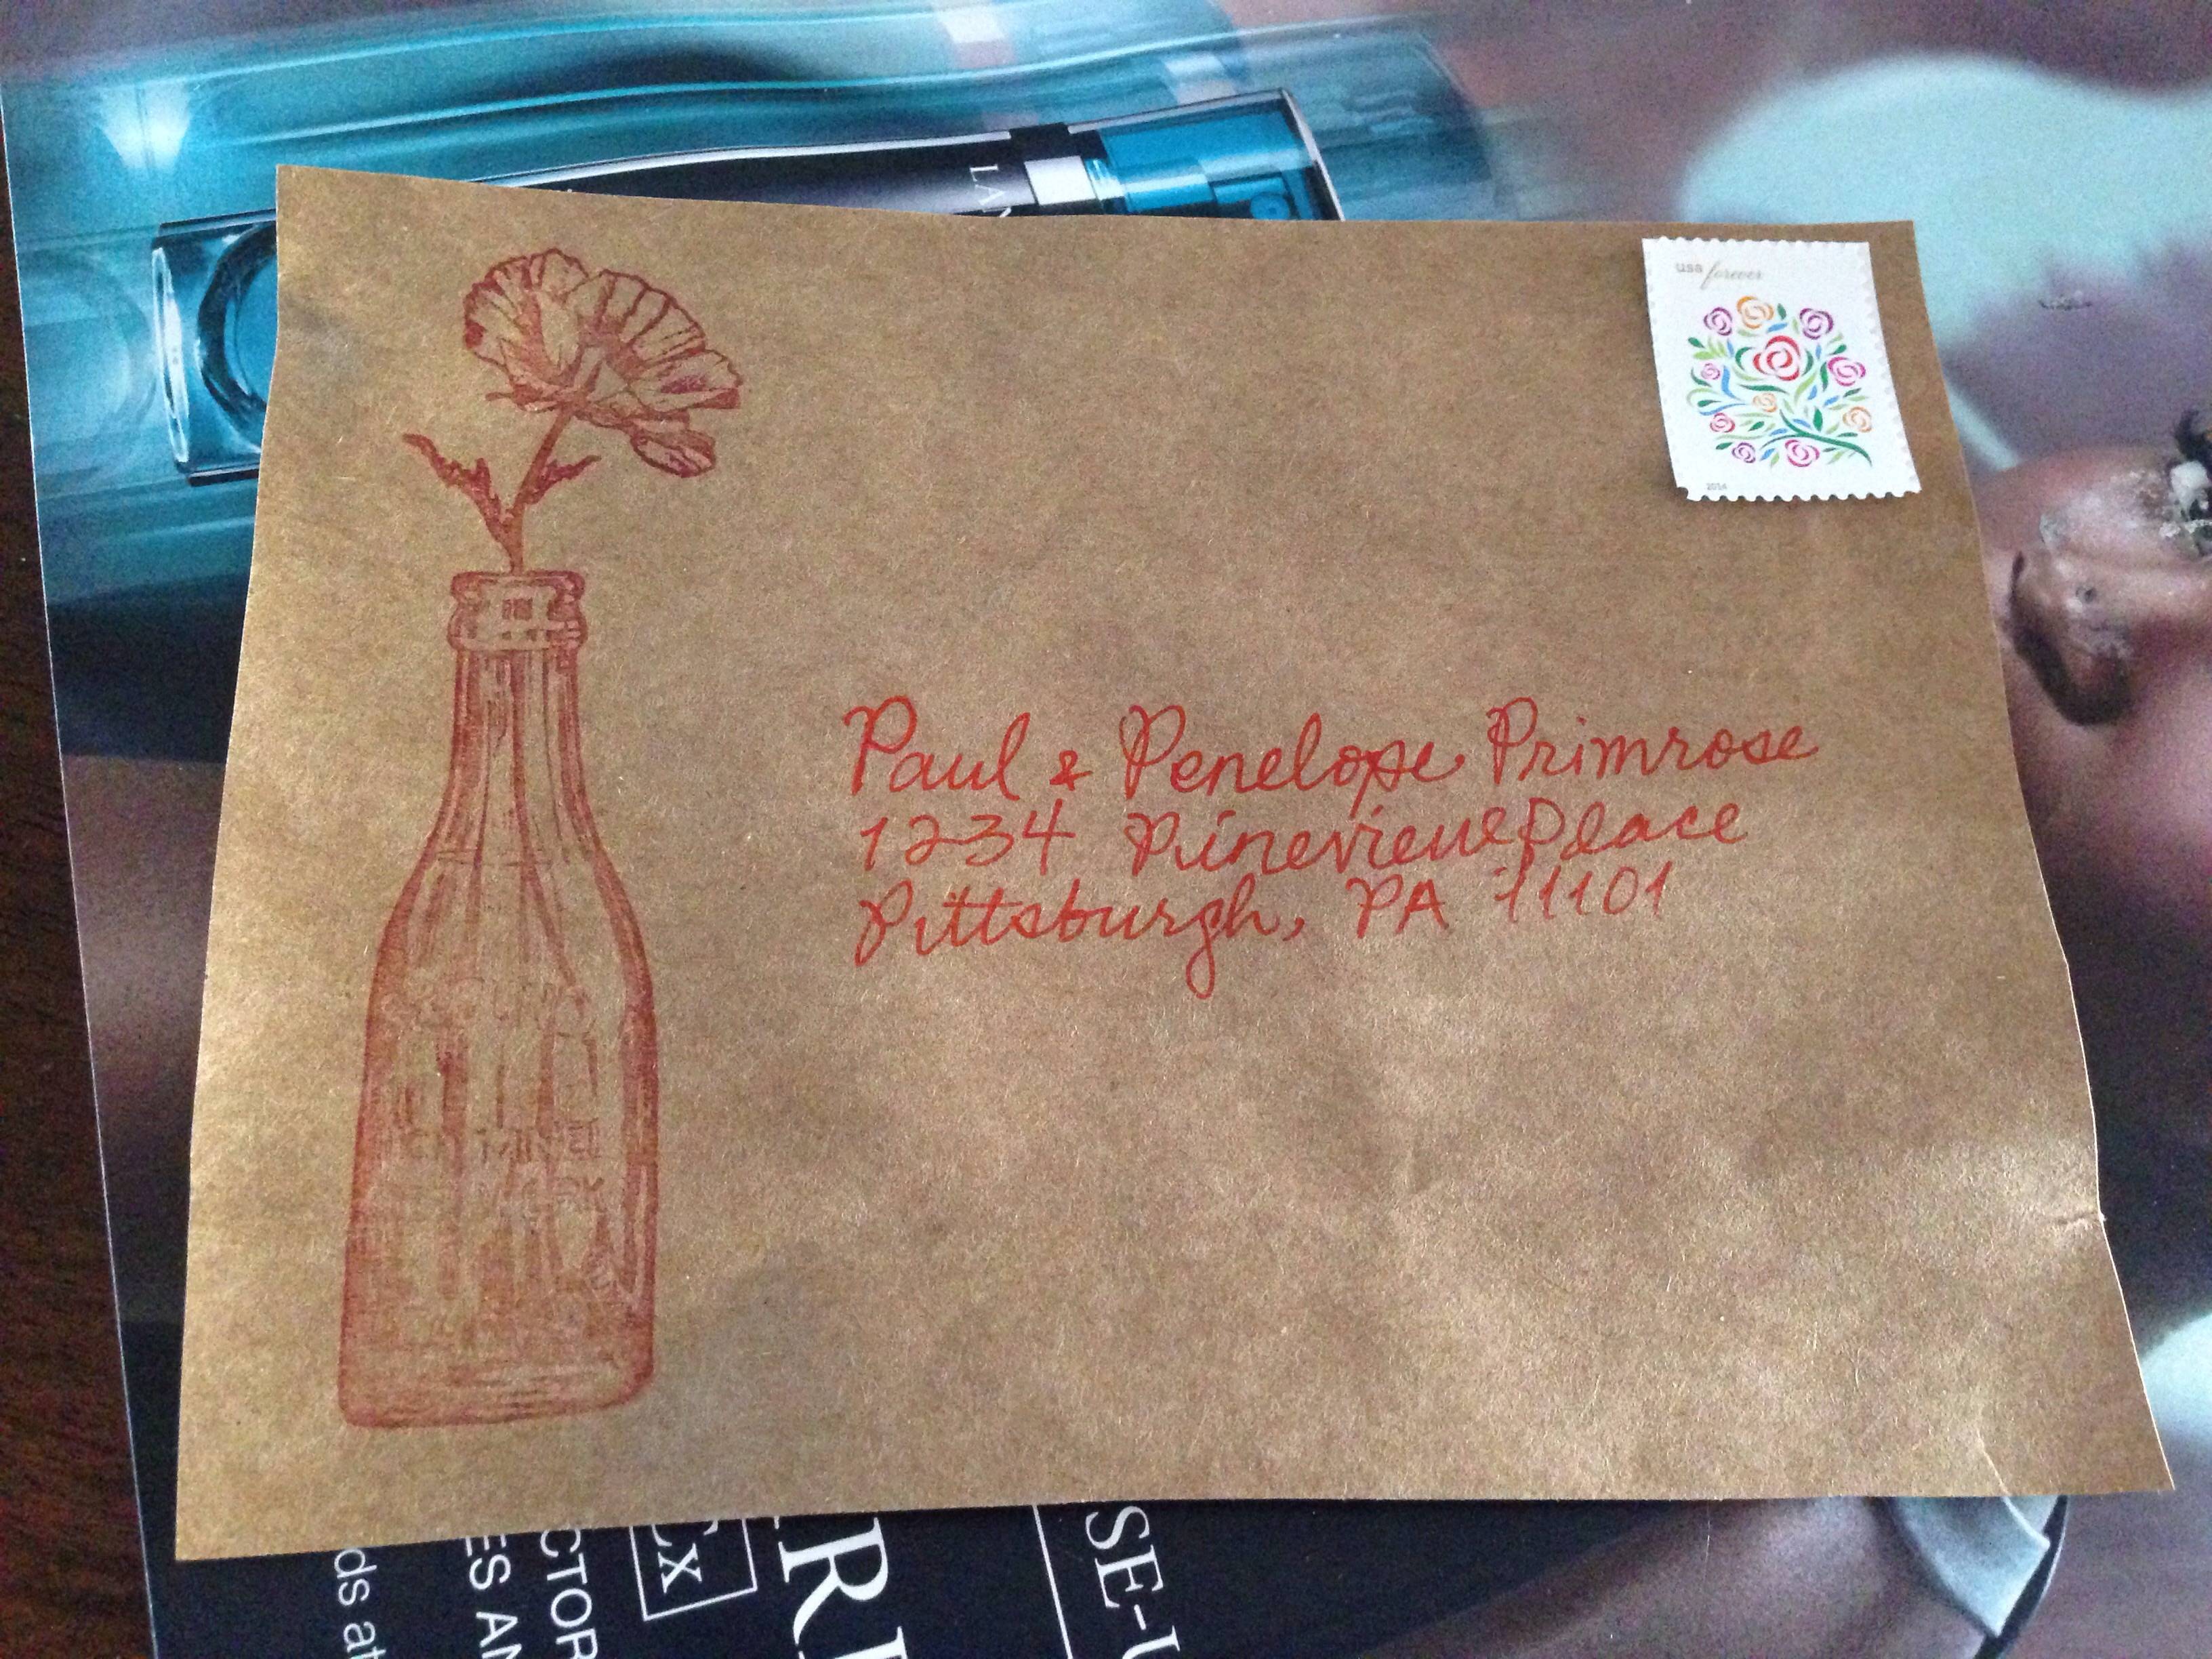 usa forever
2014
Paul & Penelope Primrose
1234 Pineview Place
Pittsburgh, PA 11101
LAN
SE-U
ERI
Cx
CTOR
ES AN
ds at